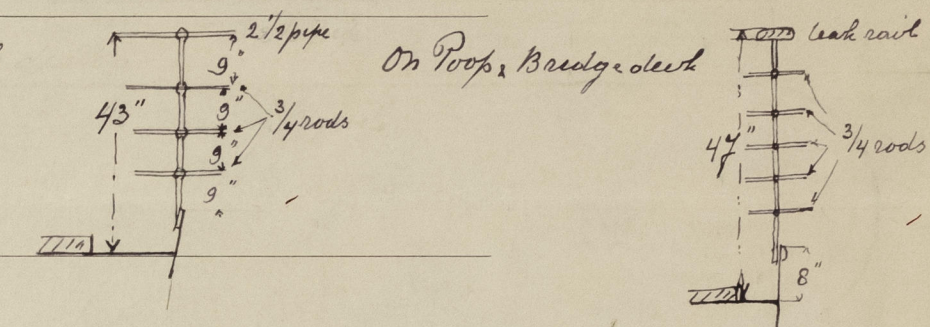 2 1/2 pipe
9"
43"
9"
3/4 rods
9"
9"
On Poop & Bridge deck
teak rail
47"
3/4 rods
8"